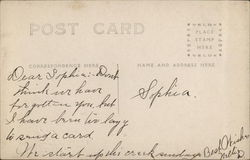 POST CARD
PLACE
STAMP
HERE
CORRESPONDENCE HERE
NAME AND ADDRESS HERE
Dear Sophia:- Don't
think we have
forgotten you, but
I have been too lazy
to send a card.
We start up the creek sunday
Sophia.
Best Wishes